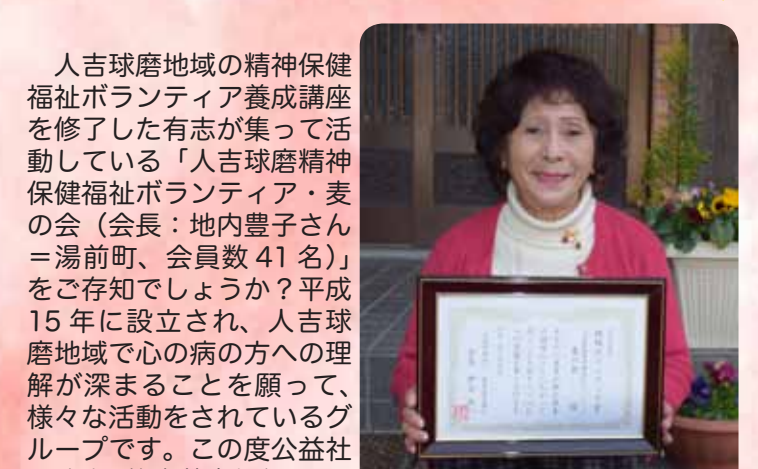 人吉球磨地域の精神保健
福祉ボランティア養成講座
を修了した有志が集って活
動している「人吉球磨精神
保健福祉ボランティア・麦
の会（会長：地内豊子さん
＝湯前町、会員数 41 名）」
をご存知でしょうか？平成
15 年に設立され、人吉球
磨地域で心の病の方への理
解が深まることを願って、
様々な活動をされているグ
ループです。この度公益社